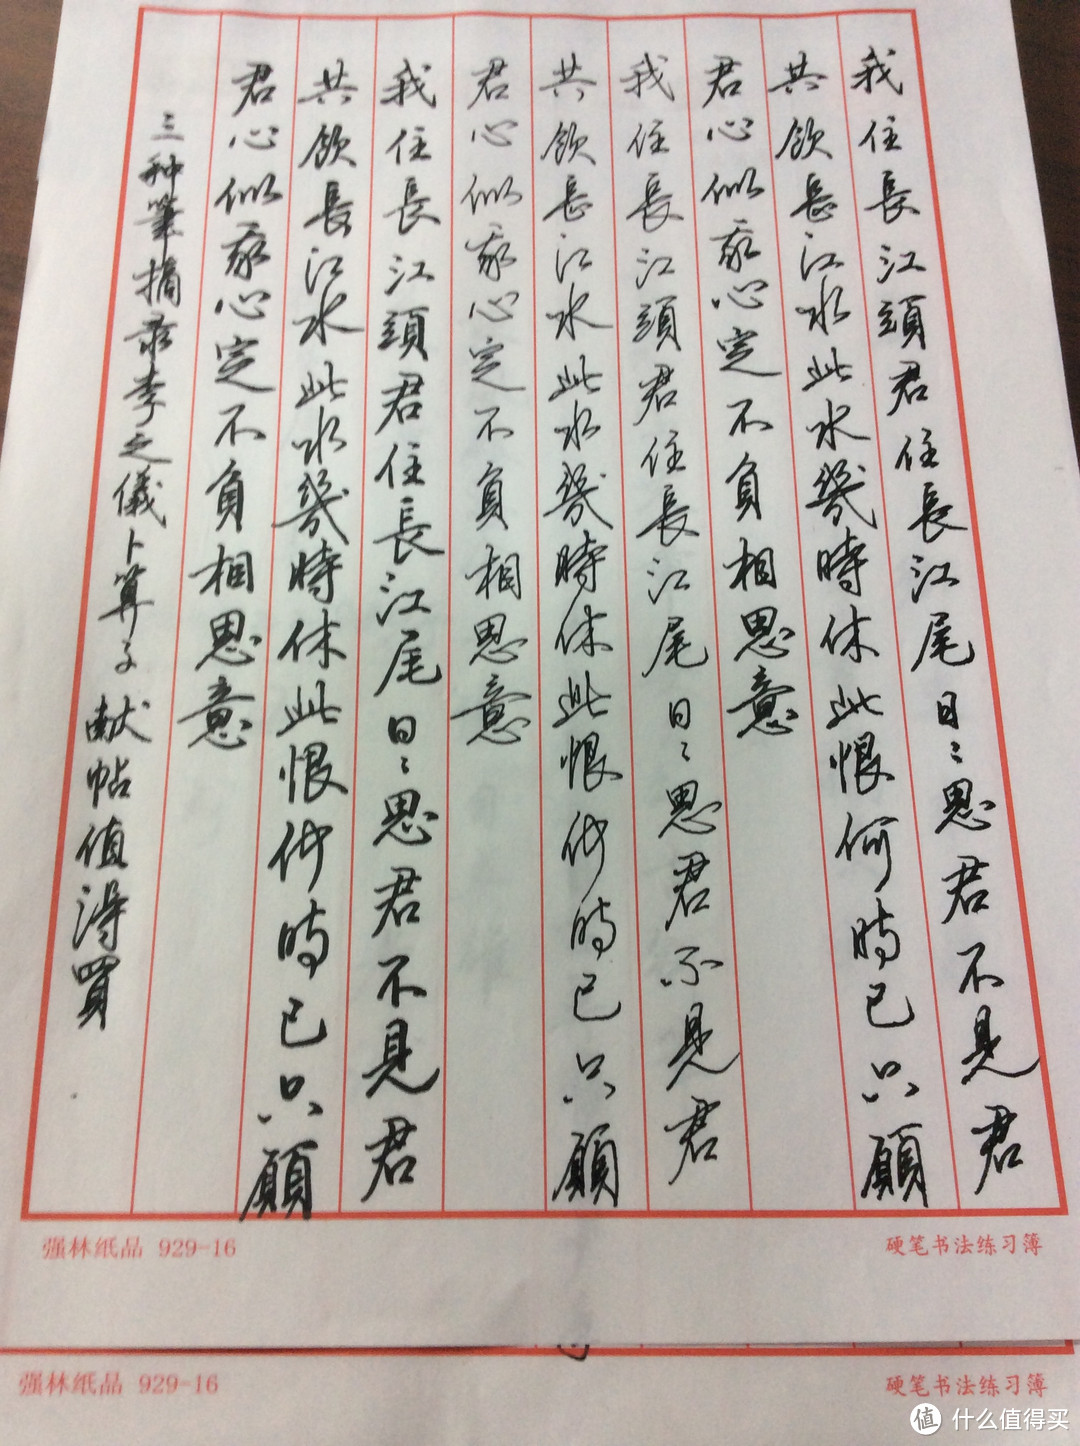 我住長江頭君住長江尾日〻思君不見君
共飲長江水此水幾時休此恨何時已只願
君心似我心定不負相思意
我住長江頭君住長江尾日〻思君不見君
共飲長江水此水幾時休此恨何時已只願
君心似我心定不負相思意
我住長江頭君住長江尾日〻思君不見君
共飲長江水此水幾時休此恨何時已只願
君心似我心定不負相思意
三种筆摘录李之儀卜算子献帖值得買
强林纸品 929-16
硬笔书法练习簿
强林纸品 929-16
硬笔书法练习簿
值 什么值得买